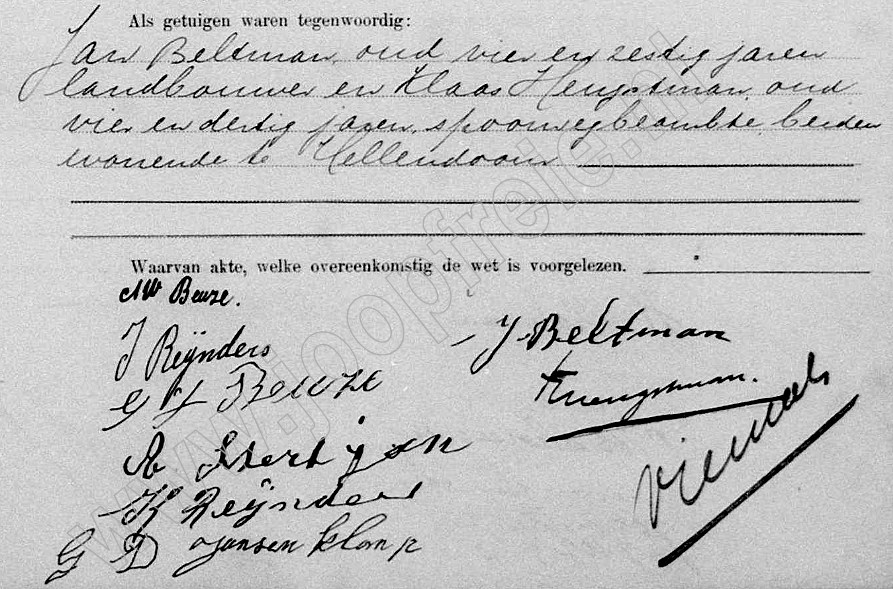 Als getuigen waren tegenwoordig:
Jan Beltman, oud vier en zestig jaren
landbouwer en Klaas Hengstman, oud
vier en dertig jaren, spoorwegbeambte, beiden
wonende te Hellendoorn
Waarvan akte, welke overeenkomstig de wet is voorgelezen.
AW Beuze.
J Reijnders
G J Beuze
J. Beltman
KHengstman.
A
K Reijnders
G D Jansen klomp
www.joopfreie.nl